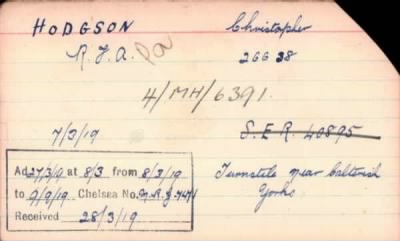 HODGSON Christopher
R.F.A. Pa 266 38
4/MH/6391.
7/3/19 S.E.R. 40895
Ad 27/3/9 at 8/3 from 8/3/19 Tunstele near Catterick
to 9/9/19 Chelsea No. Yorks
Received 28/3/19